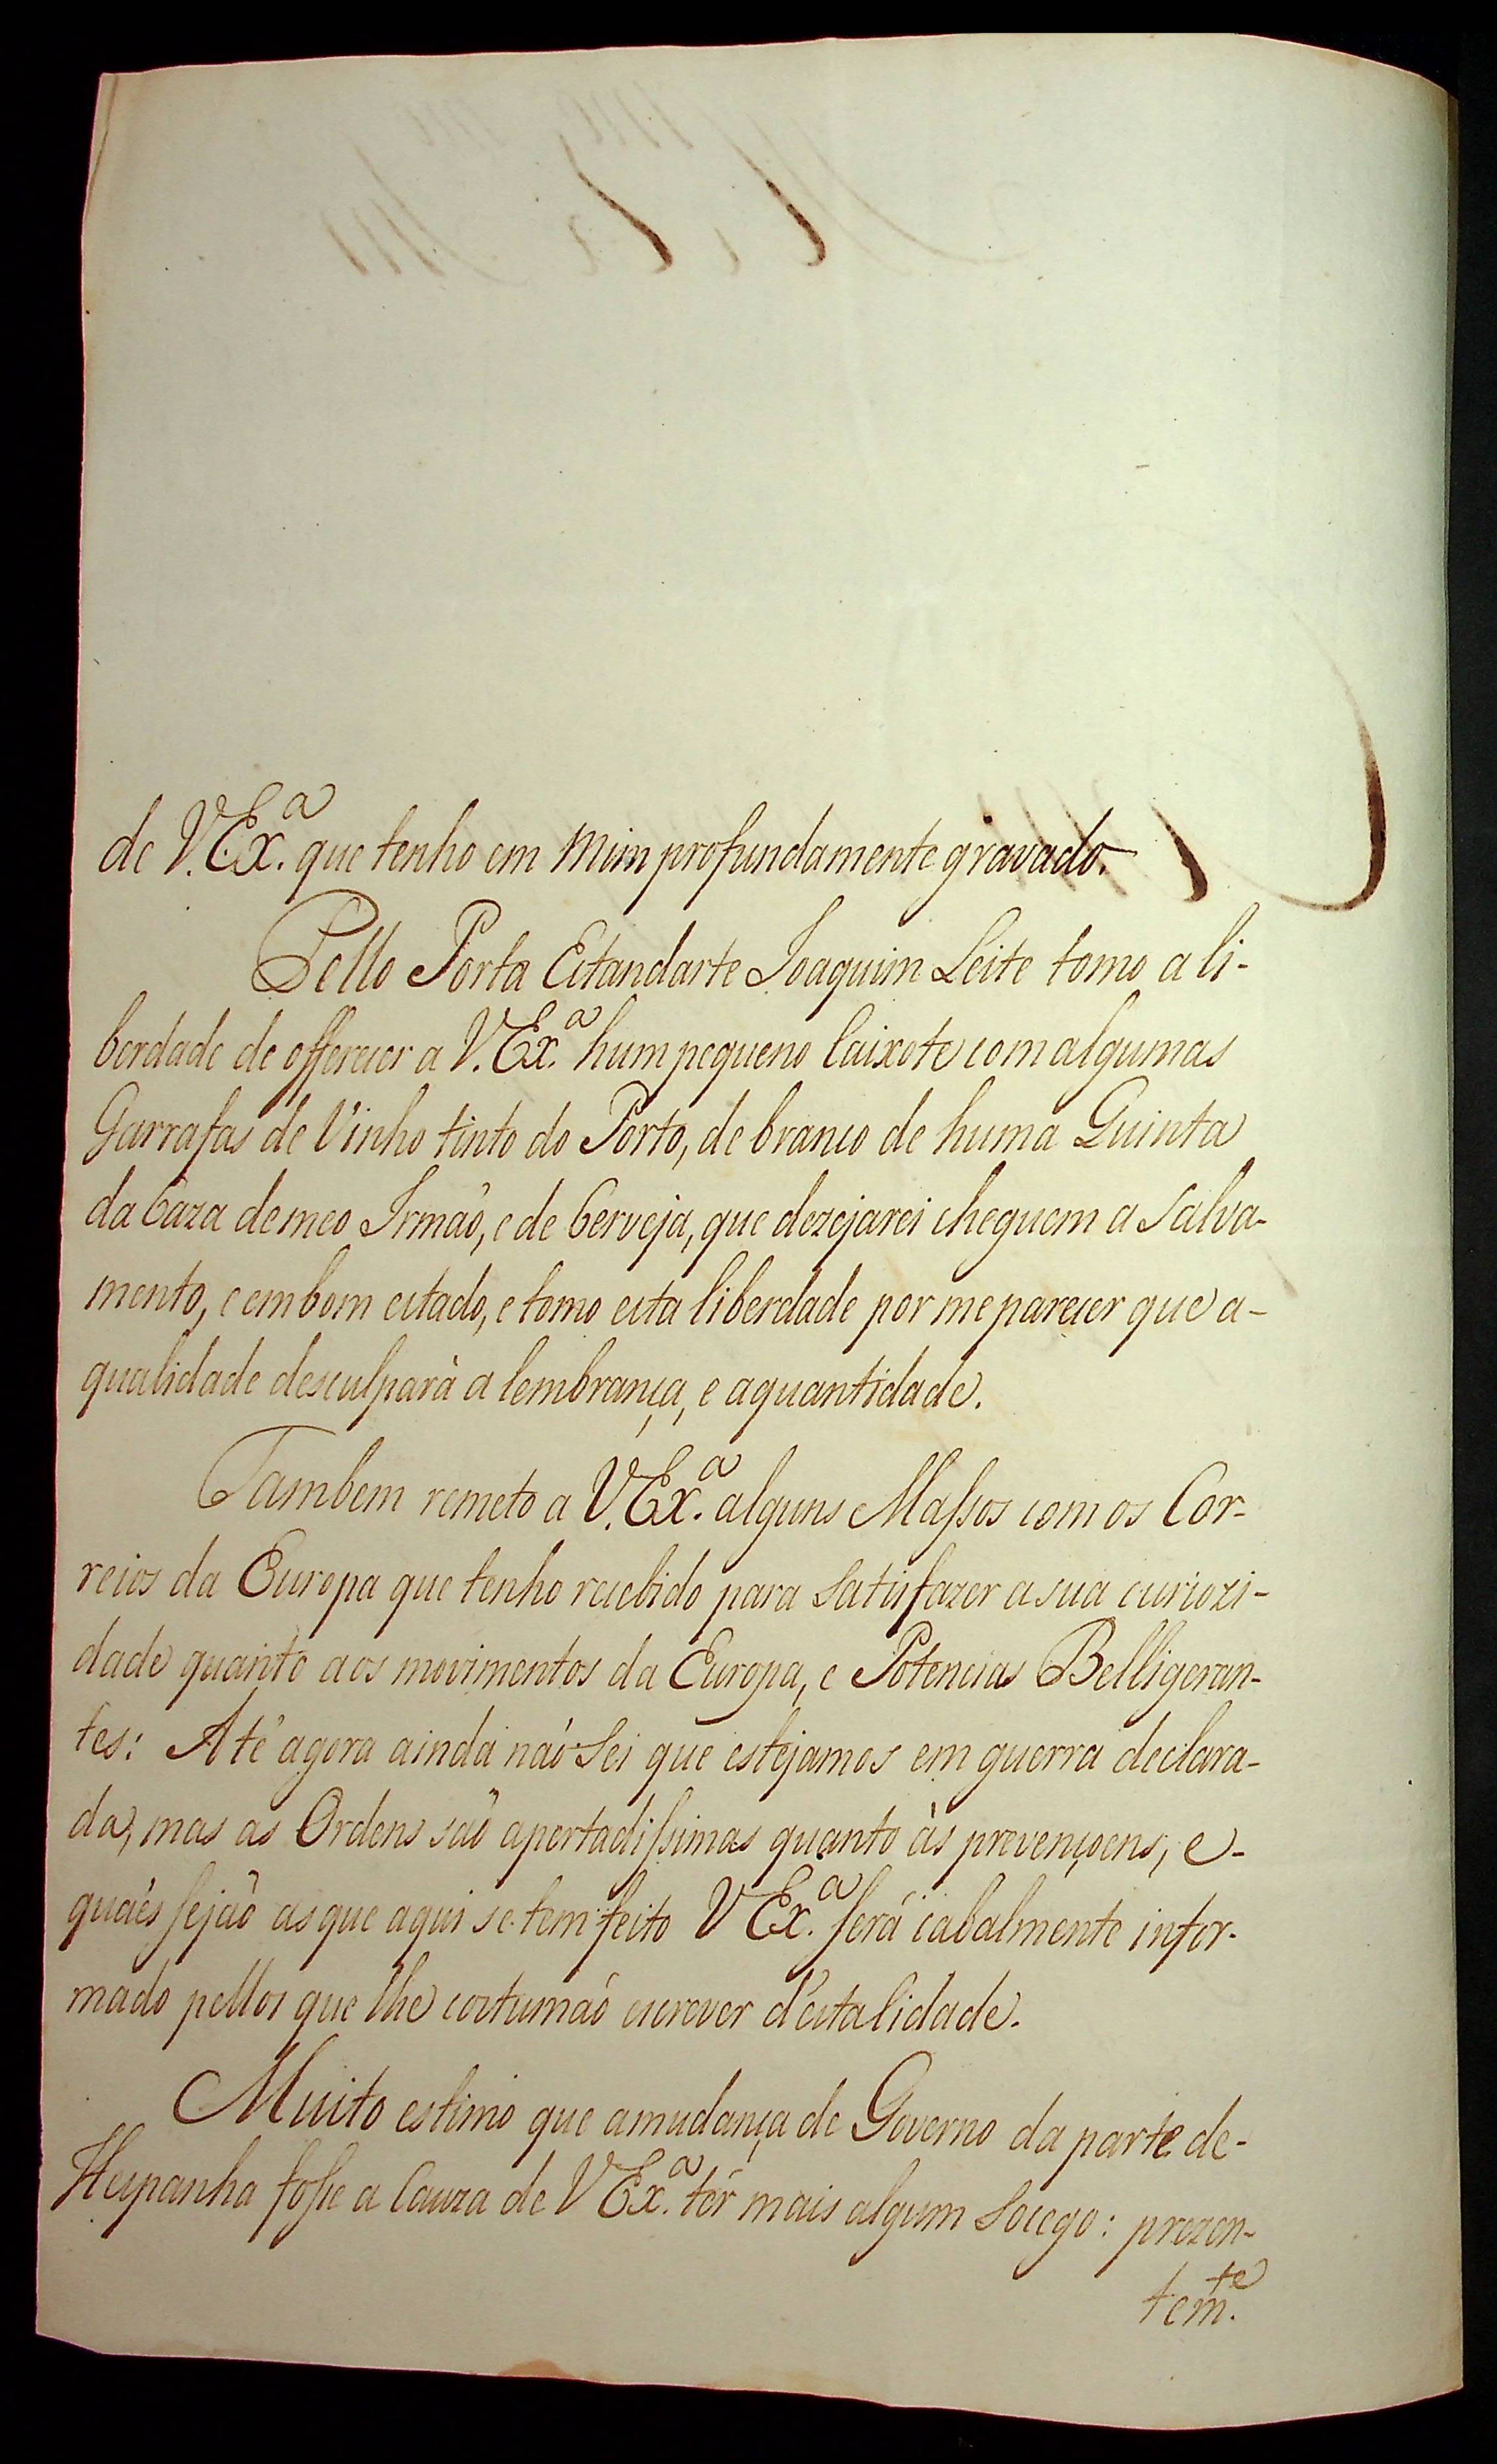 de V. Ex.ª que tenho em mim profundamente gravado.
Pello Porta Estandarte Joaquim Leite tomo a li-
berdade de offerecer a V. Ex.ª hum pequeno Caixote com algumas
Garrafas de Vinho tinto do Porto, de branco de huma Quinta
da Caza de meo Irmaõ, e de Cerveja, que dezejarei cheguem a salva-
mento, e em bom estado, e tomo esta liberdade por me parecer que a-
qualidade desculparà a lembrança, e a quantidade.
Tambem remeto a V. Ex.ª alguns Massos com os Cor-
reios da Europa que tenho recebido para satisfazer a sua curiozi-
dade quanto aos movimentos da Europa, e Potencias Belligeran-
tes: Até agora ainda naõ sei que estejamos em guerra declara-
da, mas as Ordens saõ apertadissimas quanto às prevençoens, e-
quaés sejaõ as que aqui se tem feito V Ex.ª será cabalmente infor-
mado pellos que lhe costumaõ escrever d'esta lidade.
Muito estimo que a mudança de Governo da parte de-
Hespanha fosse a Cauza de V Ex.ª tér mais algum socego: prezen-
tem.te